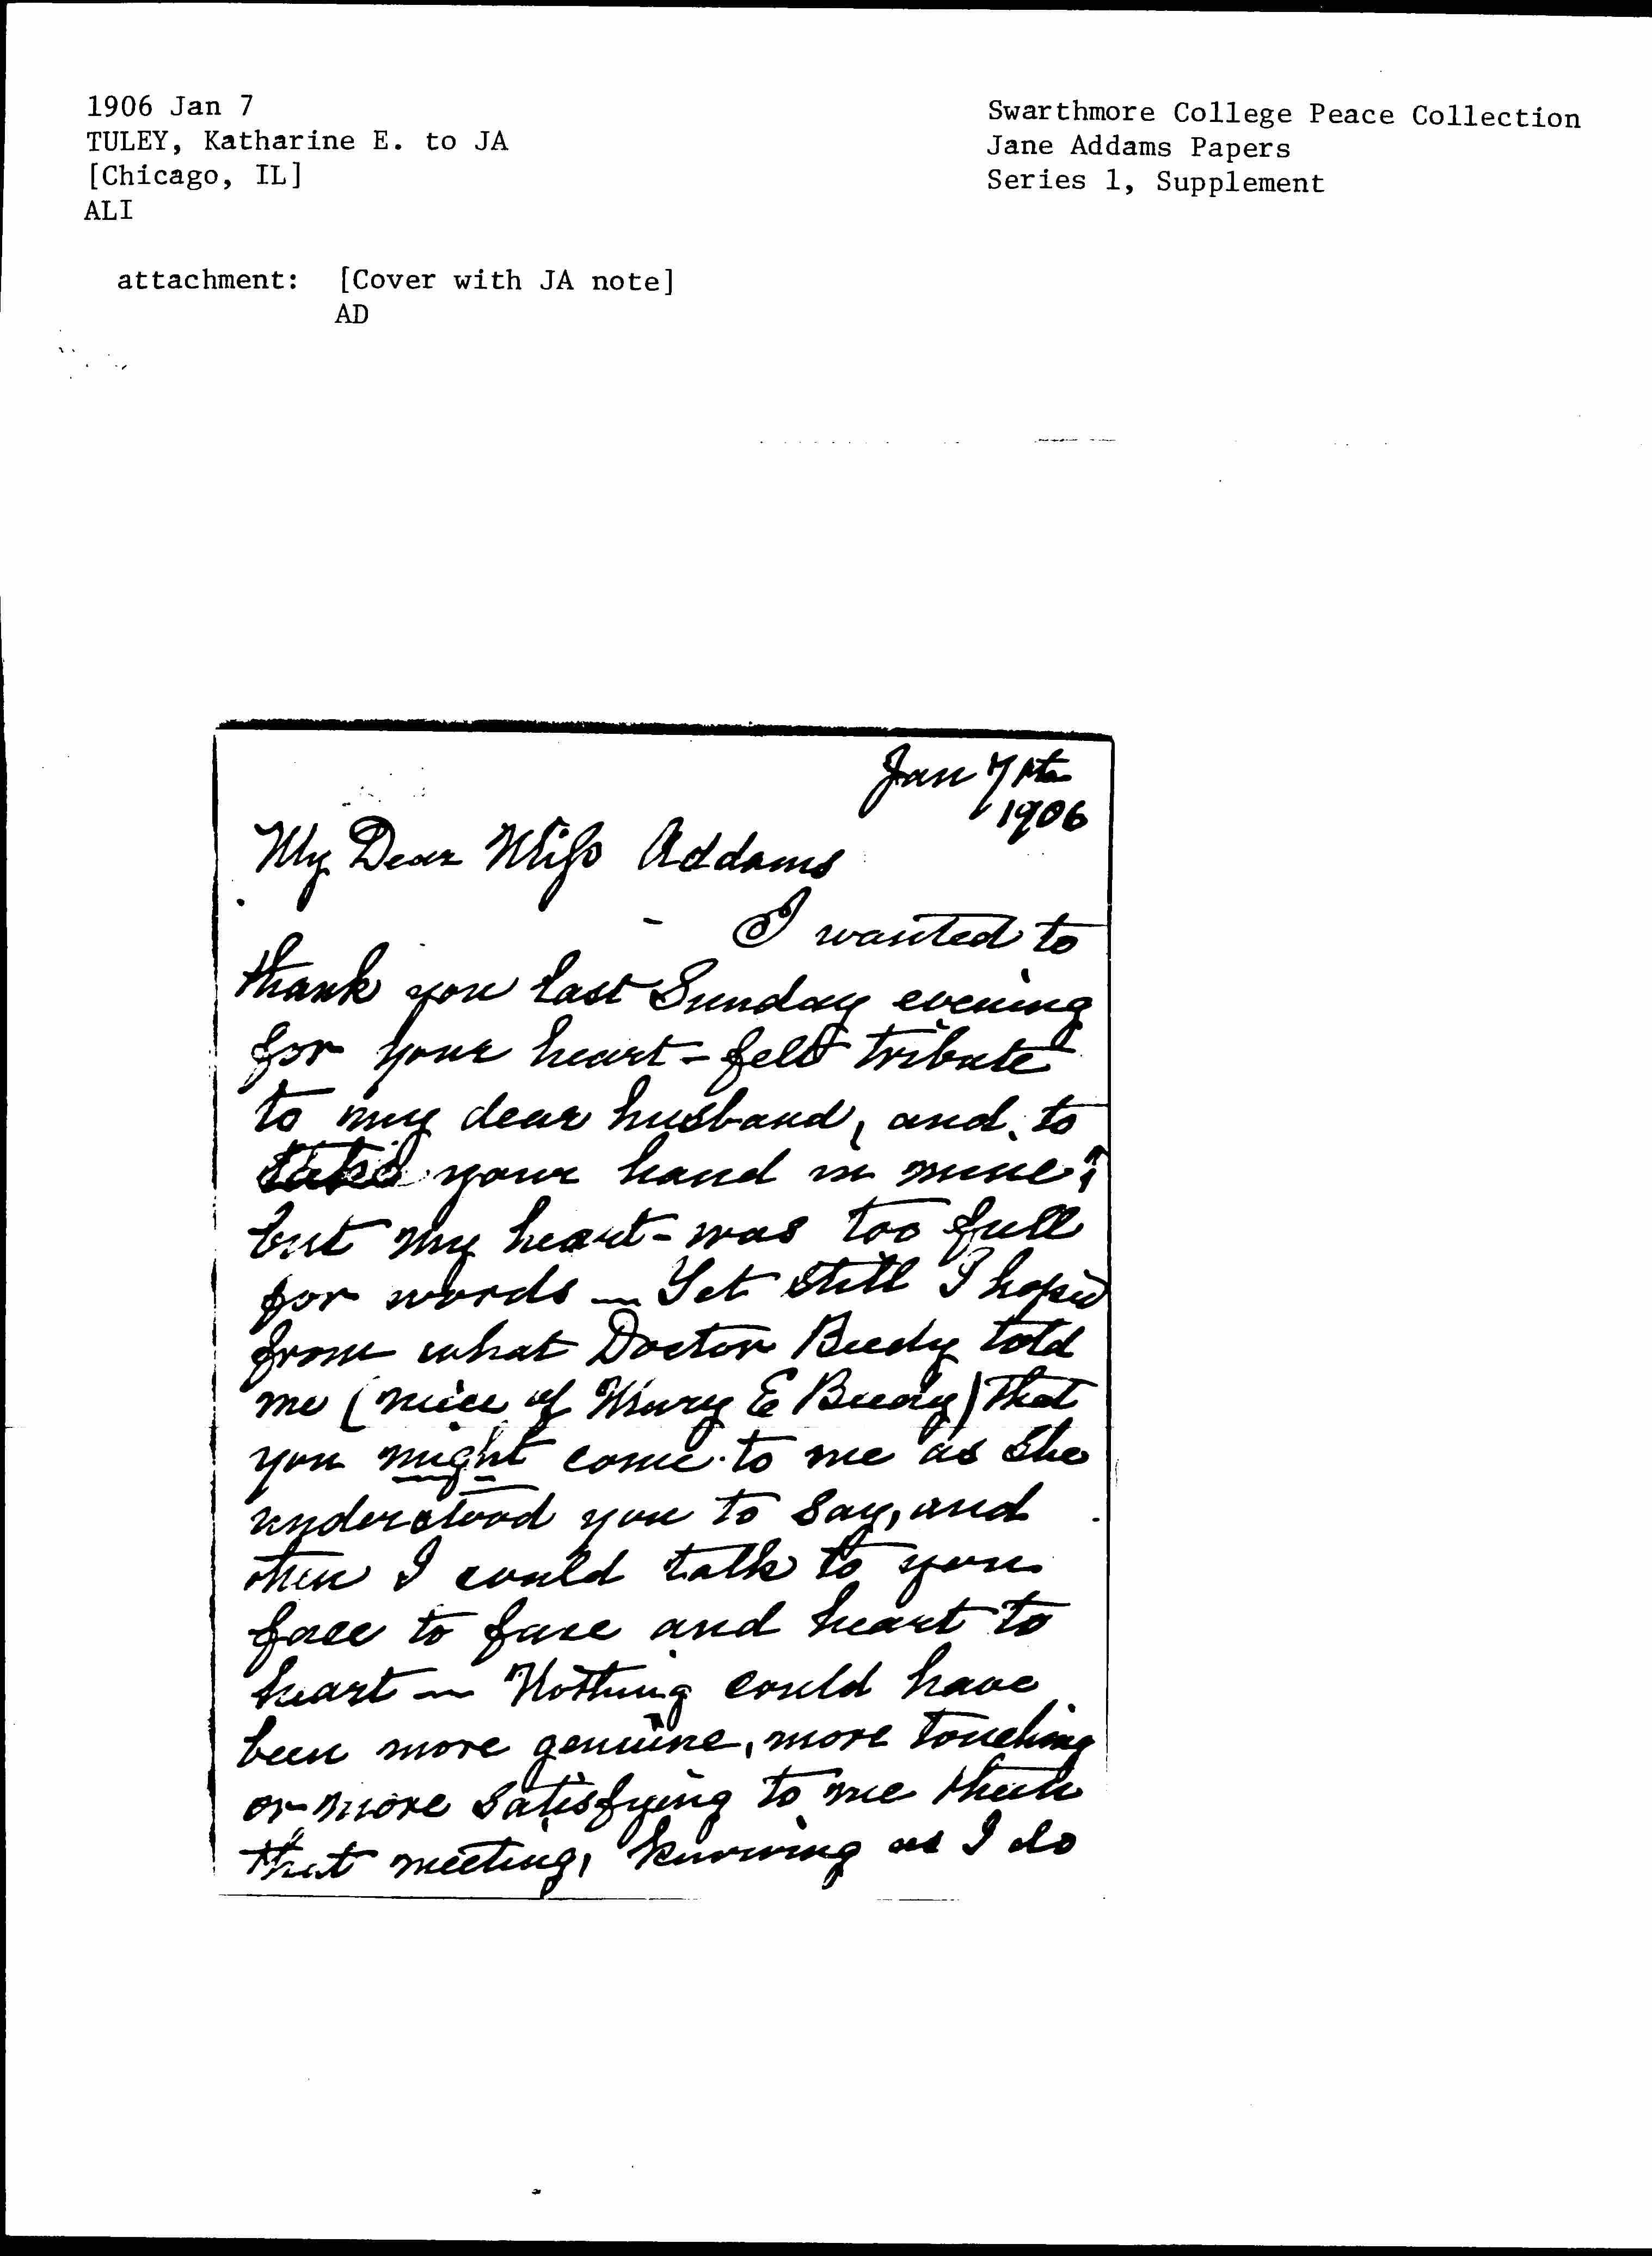 1906 Jan 7
TULEY, Katharine E. to JA
[Chicago, IL]
ALI
attachment: [Cover with JA note]
AD
Swarthmore College Peace Collection
Jane Addams Papers
Series 1, Supplement
Jan 7th
1906
My Dear Miss Addams
I wanted to
thank you last Sunday evening
for your heart-felt tribute
to my dear husband, and to
take your hand in mine;
but my heart-was too full
for words — Yet still I hoped
from what Doctor Beedy told
me (niece of Mary E Beedy) that
you might come to me as she
understood you to say, and
then I could talk to you
face to face and heart to
heart — Nothing could have
been more genuine, more touching
or more satisfying to me than
that meeting, knowing as I do